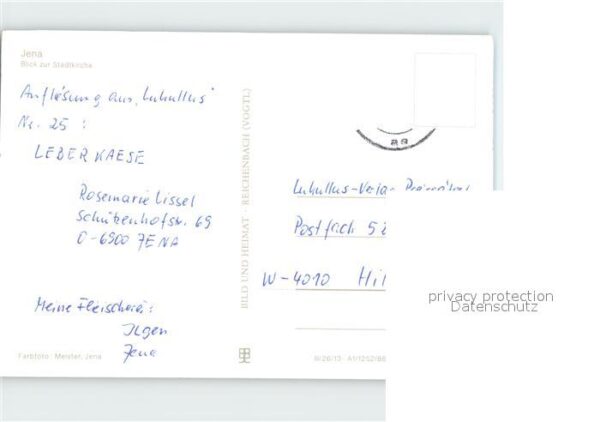 Jena
Blick zur Stadtkirche
Auflösung aus „Lukullus"
Nr. 25 :
LEBERKAESE
Rosemarie Lissel
Schützenhofstr. 69
O-6900 JENA
Meine Fleischerei:
Ilgen
Jena
Farbfoto: Meister, Jena
BILD UND HEIMAT · REICHENBACH (VOGTL)
Lukullus-Verlag
Postfach 52
W-4010 Hil
privacy protection
Datenschutz